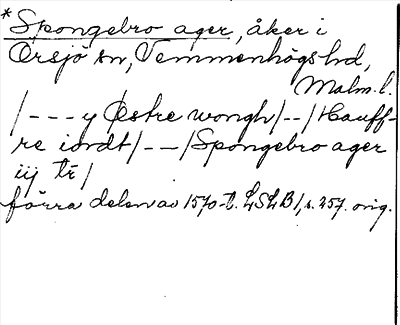 * Spongebro ager, åker i
Örsjö sn, Vemmenhögs hd,
Malm. l.
/---y Østre wongh/--/Hauff-
re iordt/--/Spongebro ager
iij tr/
förra delen av 1570-t. LSLB1, s. 257. orig.